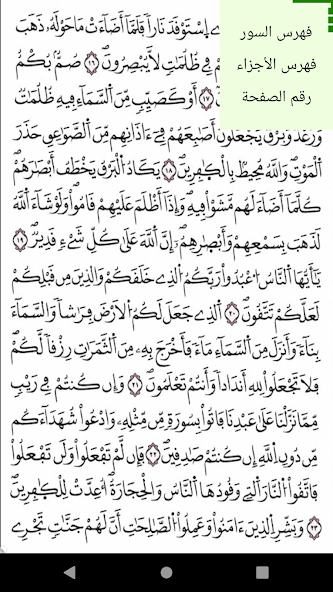 فهرس السور
فهرس الأجزاء
رقم الصفحة
اِ۪سْتَوْقَدَ نَاراٗ فَلَمَّآ أَضَآءَتْ مَا حَوْلَهُۥ ذَهَبَ
فِے ظُلُمَٰتٖ لَّا يُبْصِرُونَۖ ١٦ صُمُّۢ بُكْمٌ
١٧ أَوْ كَصَيِّبٖ مِّنَ اَ۬لسَّمَآءِ فِيهِ ظُلُمَٰتٞ
وَرَعْدٞ وَبَرْقٞ يَجْعَلُونَ أَصَٰبِعَهُمْ فِےٓ ءَاذَانِهِم مِّنَ اَ۬لصَّوَٰعِقِ حَذَرَ
اَ۬لْمَوْتِۖ وَاللَّهُ مُحِيطُۢ بِالْكٰ۪فِرِينَۖ ١٨ يَكَادُ اُ۬لْبَرْقُ يَخْطَفُ أَبْصَٰرَهُمْۖ
كُلَّمَآ أَضَآءَ لَهُم مَّشَوْاْ فِيهِۖ وَإِذَآ أَظْلَمَ عَلَيْهِمْ قَامُواْۖ وَلَوْ شَآءَ اَ۬للَّهُ
لَذَهَبَ بِسَمْعِهِمْ وَأَبْصٰ۪رِهِمُۥٓۖ إِنَّ اَ۬للَّهَ عَلَىٰ كُلِّ شَےْءٖ قَدِيرٞۖ ١٩
يَٰٓأَيُّهَا اَ۬لنَّاسُ اُ۟عْبُدُواْ رَبَّكُمُ اُ۬لذِے خَلَقَكُمْ وَالذِينَ مِن قَبْلِكُمْ
لَعَلَّكُمْ تَتَّقُونَۖ ٢٠ اَ۬لذِے جَعَلَ لَكُمُ اُ۬لْأَرْضَ فِرَٰشاٗ وَالسَّمَآءَ
بِنَآءٗ وَأَنزَلَ مِنَ اَ۬لسَّمَآءِ مَآءٗ فَأَخْرَجَ بِهِۦ مِنَ اَ۬لثَّمَرَٰتِ رِزْقاٗ لَّكُمْۖ
فَلَا تَجْعَلُواْ لِلهِ أَندَاداٗ وَأَنتُمْ تَعْلَمُونَۖ ٢١ وَإِن كُنتُمْ فِے رَيْبٖ
مِّمَّا نَزَّلْنَا عَلَىٰ عَبْدِنَا فَاتُواْ بِسُورَةٖ مِّن مِّثْلِهِۦ وَادْعُواْ شُهَدَآءَكُم
مِّن دُونِ اِ۬للَّهِ إِن كُنتُمْ صَٰدِقِينَۖ ٢٢ فَإِن لَّمْ تَفْعَلُواْ وَلَن تَفْعَلُواْ
فَاتَّقُواْ اُ۬لنَّارَ اَ۬لتِے وَقُودُهَا اَ۬لنَّاسُ وَالْحِجَارَةُۖ أُعِدَّتْ لِلْكٰ۪فِرِينَۖ
٢٣ وَبَشِّرِ اِ۬لذِينَ ءَامَنُواْ وَعَمِلُواْ اُ۬لصَّٰلِحَٰتِ أَنَّ لَهُمْ جَنَّٰتٖ تَجْرِے